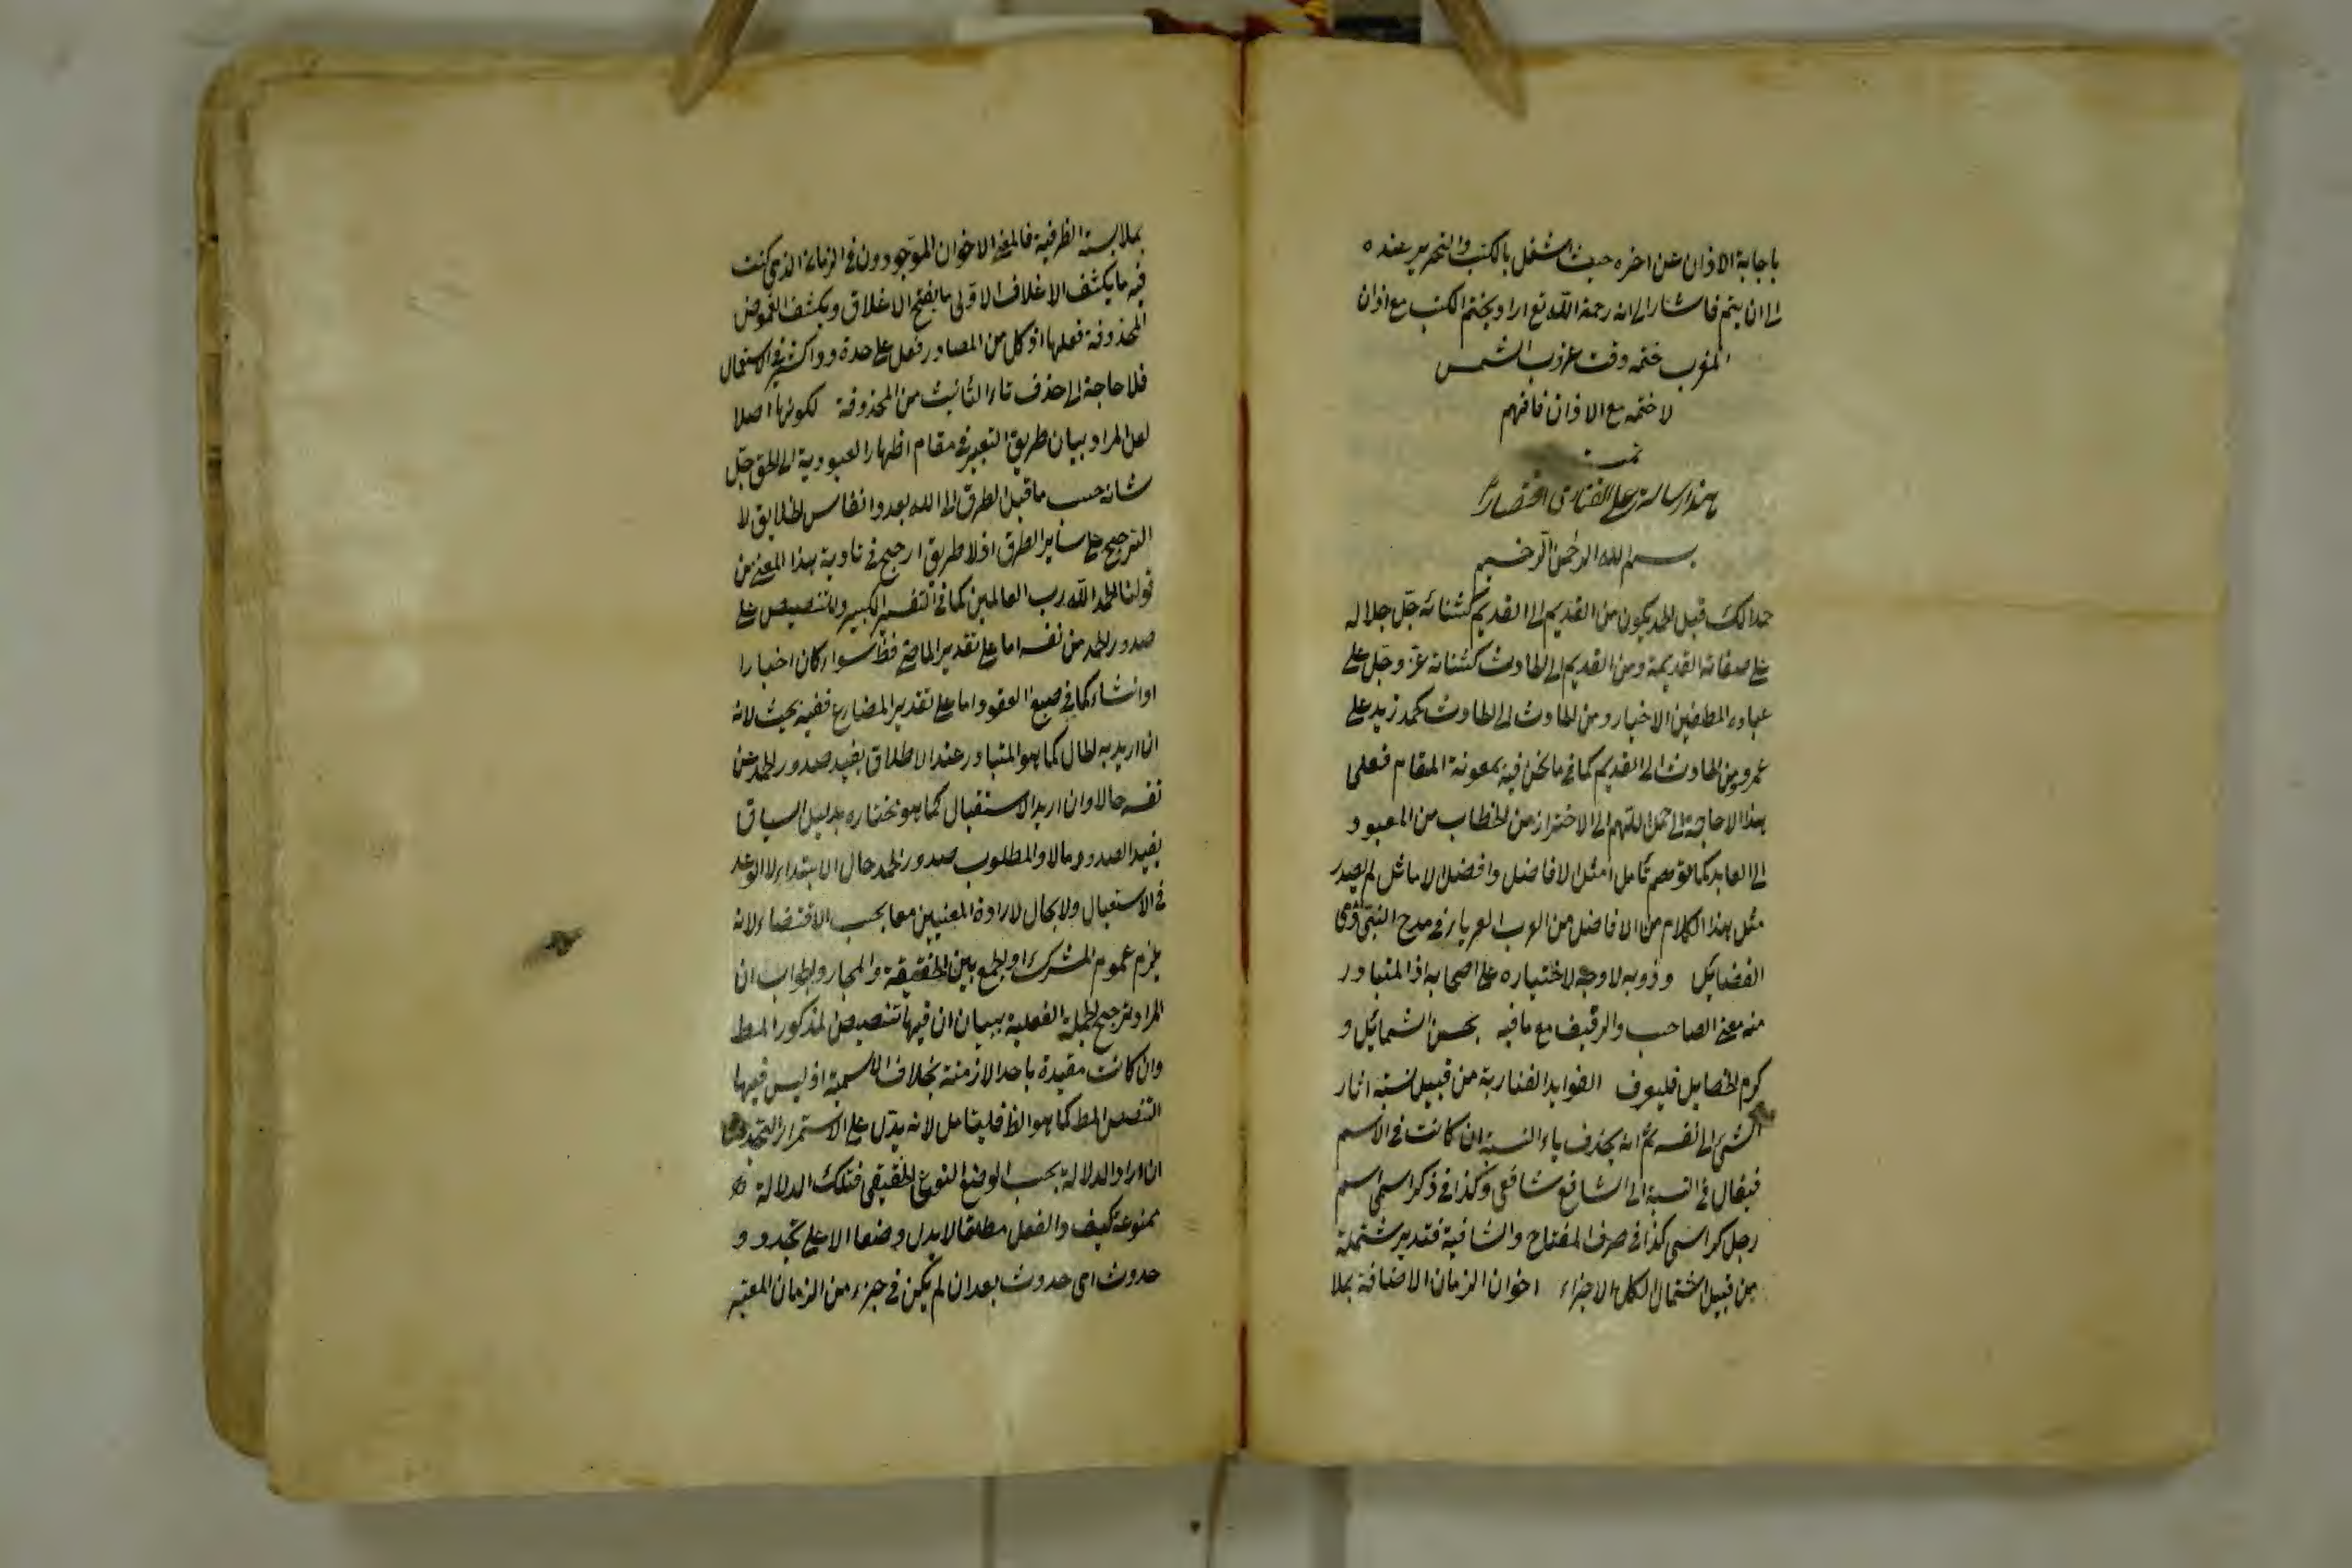 باجابة الاذان عن اخره حيث اشتغل بالكتب والتحرير عنده
الى ان يتم فاشار الى انه رحمة الله تع اراد بختم الكتب مع اذان
المغرب ختمه وقت غروب الشمس
لا ختمه مع الاذان فافهم
تمت
هذا رسالة على الفنارى اختصارا
بسم الله الرحمن الرحيم
حمدا لك قيل الحمد يكون من القديم الى القديم كثنائه جل جلاله
على صفاته القديمة ومن القديم الى الحادث كثنائه عز وجل على
عباده المطفين الاخيار ومن الحادث الى الحادث كحمد زيد على
عمرو ومن الحادث الى القديم كما فى ما نحن فيه بمعونة المقام فعلى
هذا لا حاجة الى حمل اللهم الى الاحتراز من الخطاب من المعبود
الى العابد كما توهم تأمل امثل الافاضل وافضل الاماثل لم يصدر
مثل هذا الكلام من الافاضل من العرب العرباء فى مدح النبى ذى
الفضائل وذويه لا وجه لاختياره على اصحابه اذ المتبادر
منه معنى الصاحب والرفيق مع ما فيه بحسن الشمائل و
كرم الخصايل فليعرف الفوايد الفنارية من قبيل نسبة اثار
الشئ الى نفسه ثم انه يحذف ياء النسبة ان كانت فى الاسم
فيقال فى النسبة الى الشافعى شافعى وكذا فى ذكر اسمى اسم
رجل كراسى كذا فى صرف المفتاح والشافية فتدبر مشتملة
من قبيل اشتمال الكل الاجزاء اخوان الزمان الاضافة بملا
بملابسة الظرفية فالمعنى الاخوان الموجودون فى الزمان الذى كنت
فيه ما يكشف الاغلاق الاولى ما يفتح الاغلاق ويكشف الغموض
المحذوفة فعلها اذ كل من المصادر فعل على حدة ودا كثير فى الاستعمال
فلا حاجة الى حذف تاء التأنيث من المحذوفة لكونها اصلا
لعل المراد بيان طريق التعبير فى مقام اظهار العبودية الى الحق جل
شانه حسب ما قيل الطرق الى الله بعدد انفاس الخلايق لا
الترجيح على سائر الطرق اذ لا طريق ارجح فى تادية هذا المعنى من
قولنا الحمد لله رب العالمين كما فى التفسير الكبير والتنصيص على
صدور الحمد من نفسه اما على تقدير الماضى فظ سواء كان اخبارا
او انشاء كما فى صيغ العقود واما على تقدير المضارع ففيه بحث لانه
ان اريد به الحال كما هو المتبادر عند الاطلاق يفيد صدور الحمد عن
نفسه حالا وان اريد الاستقبال كما هو نختاره بدليل السياق
يفيد الصدور مالا والمطلوب صدور الحمد حال الابتداء لا الوعد
فى الاستقبال ولا مجال لارادة المعنيين معا بحسب الاقتضاء لانه
يلزم عموم المشترك او الجمع بين الحقيقة والمجاز والجواب ان
المراد ترجيح الجملة الفعلية ببيان ان فيها تنصيص المذكور المط
وان كانت مقيدة باحد الازمنة بخلاف الاسمية اذ ليس فيها
التنصيص المط كما هو الظ فليتامل لانه يدل على الاستمرار التجددى
ان اراد الدلالة بحسب الوضع النوعى الحقيقى فتلك الدلالة
ممنوعة كيف والفعل مطلقا لا يدل وضعا الا على تجدد و
حدوث اى حدوث بعد ان لم يكن فى جزء من الزمان المعتبر